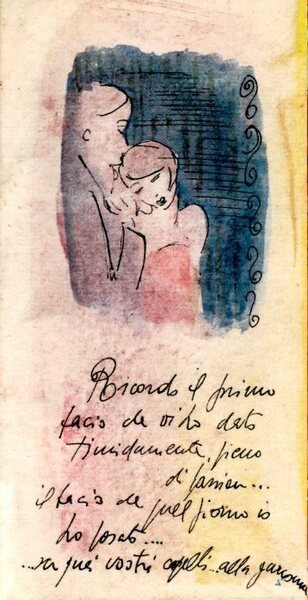 Ricordo il primo
bacio che vi ho dato
timidamente, pieno
di passion...
il bacio che quel giorno io
ho posato....
...su quei vostri capelli...alla